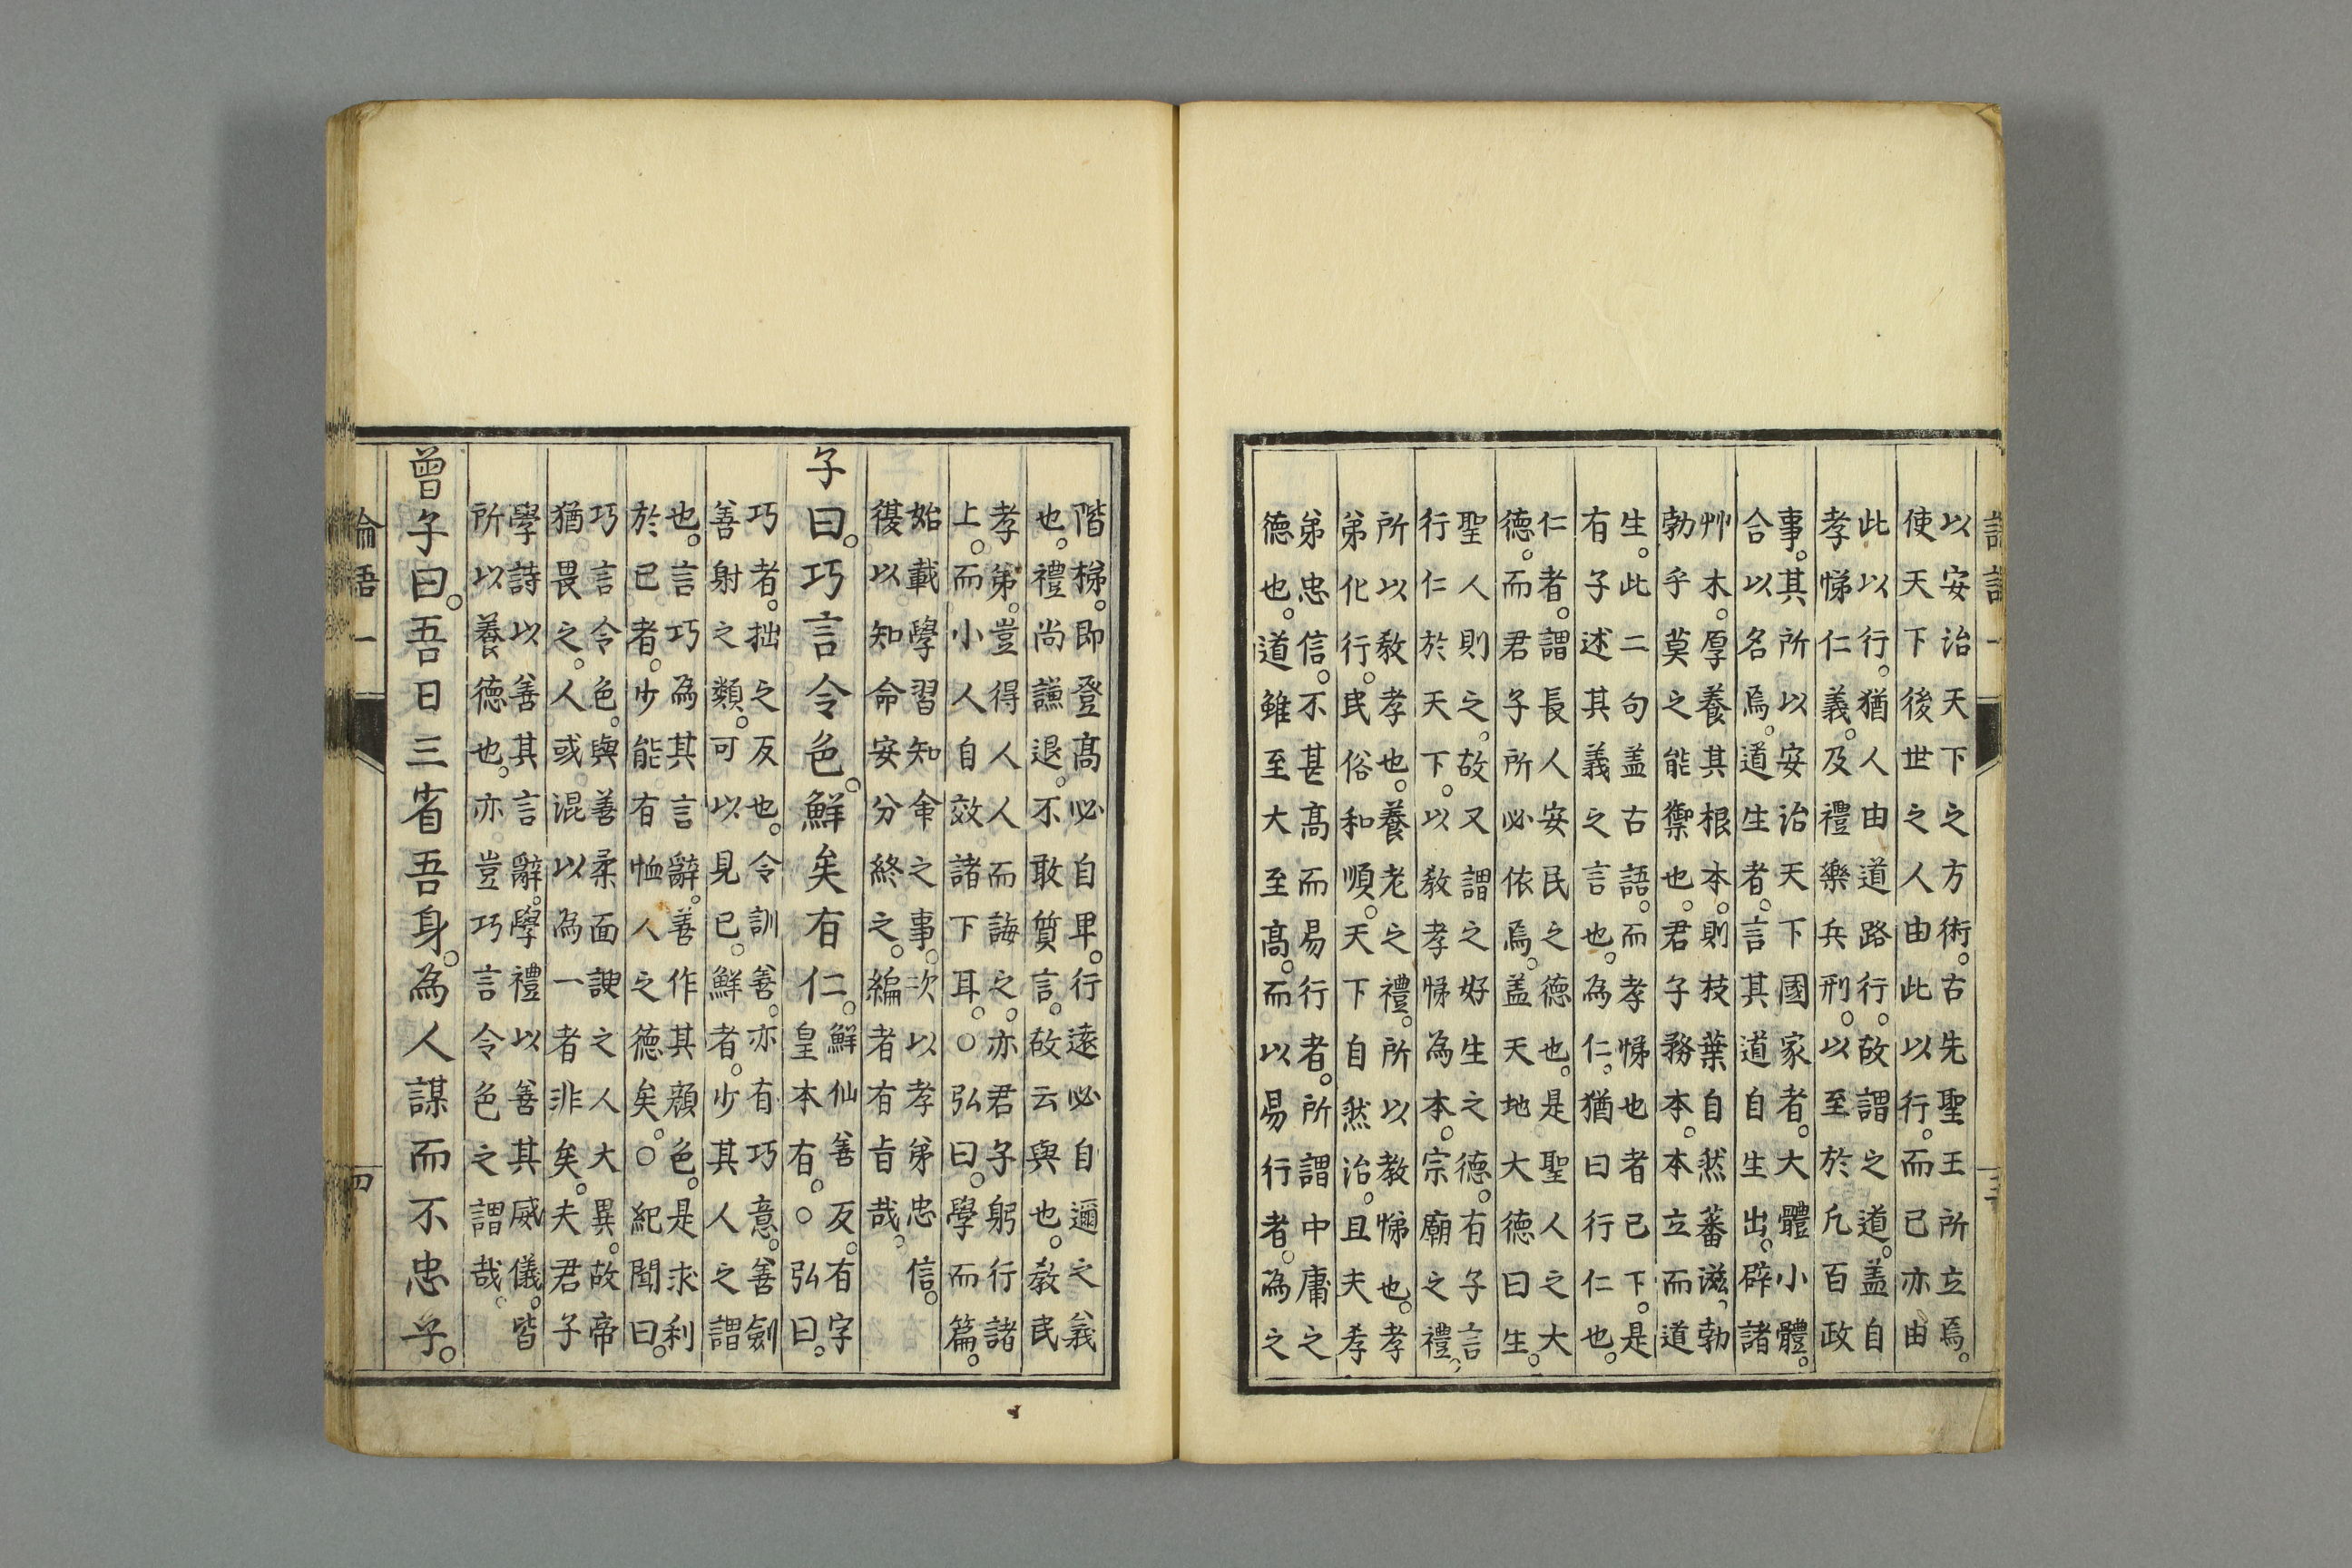 以安治天下之方術。古先聖王所立焉。
使天下後世之人由此以行。而已亦由
此以行。猶人由道路行。故謂之道。蓋自
孝悌仁義。及禮樂兵刑。以至於凡百政
事。其所以安治天下國家者。大體小體。
合以名焉。道生者。言其道自生出。辟諸
艸木。厚養其根本。則枝葉自然蕃滋。勃
勃乎莫之能禦也。君子務本。本立而道
生。此二句盖古語。而孝悌也者已下。是
有子述其義之言也。為仁。猶曰行仁也。
仁者。謂長人安民之德也。是聖人之大
德。而君子所必依焉。盖天地大德曰生。
聖人則之。故又謂之好生之德。有子言
行仁於天下。以教孝悌為本。宗廟之禮。
所以敎孝也。養老之禮。所以教悌也。孝
弟化行。民俗和順。天下自然治。且夫孝
弟忠信。不甚高而易行者。所謂中庸之
德也。道雖至大至高。而以易行者。為之
階梯。即登高必自卑。行遠必自邇之義
也。禮尚謙退。不敢質言。故云與也。敎民
孝弟。豈得人人而誨之。亦君子躬行諸
上。而小人自效諸下耳。○弘曰。學而篇。
始載學習知命之事。次以孝弟忠信。
復以知命安分終之。編者有旨哉。
子曰。巧言令色。鮮矣有仁。鮮仙善反。有字
皇本有。○弘曰。
巧者。拙之反也。令訓善。亦有巧意。善劍
善射之類。可以見已。鮮者。少其人之謂
也。言巧為其言辭。善作其顏色。是求利
於已者。少能有恤人之德矣。○紀聞曰。
巧言令色。與善柔面諛之人大異。故帝
猶畏之。人或混以為一者非矣。夫君子
學詩以善其言辭。學禮以善其威儀。皆
所以養德也。亦豈巧言令色之謂哉。
曾子曰。吾日三省吾身。為人謀而不忠乎。
論語一
四